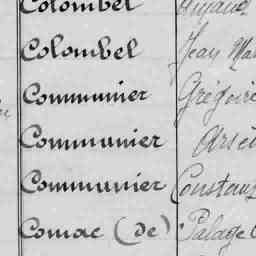 Colombel
Colombel Jean
Communier Grégoire
Communier
Communier
Comac (de) Palage